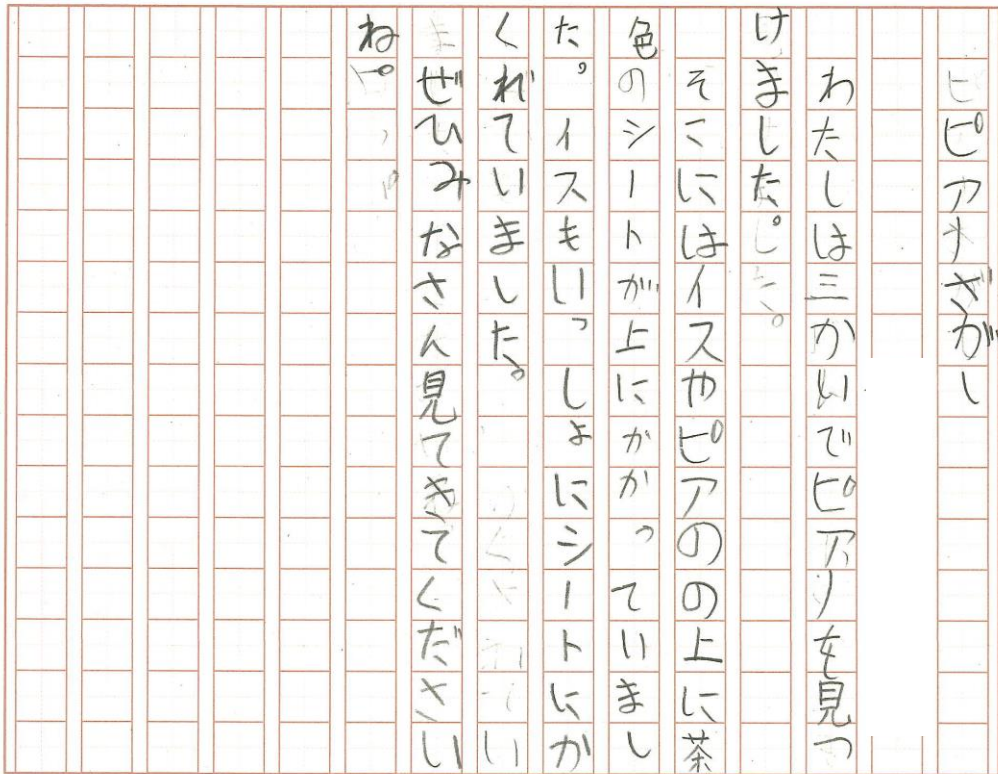 ピアノざがし
わたしは三かいでピアノを見つ
けました。
そこにはイスやピアのの上に茶
色のシートが上にかかっていまし
た。イスもいっしょにシートにか
くれていました。
ぜひみなさん見てきてください
ね。